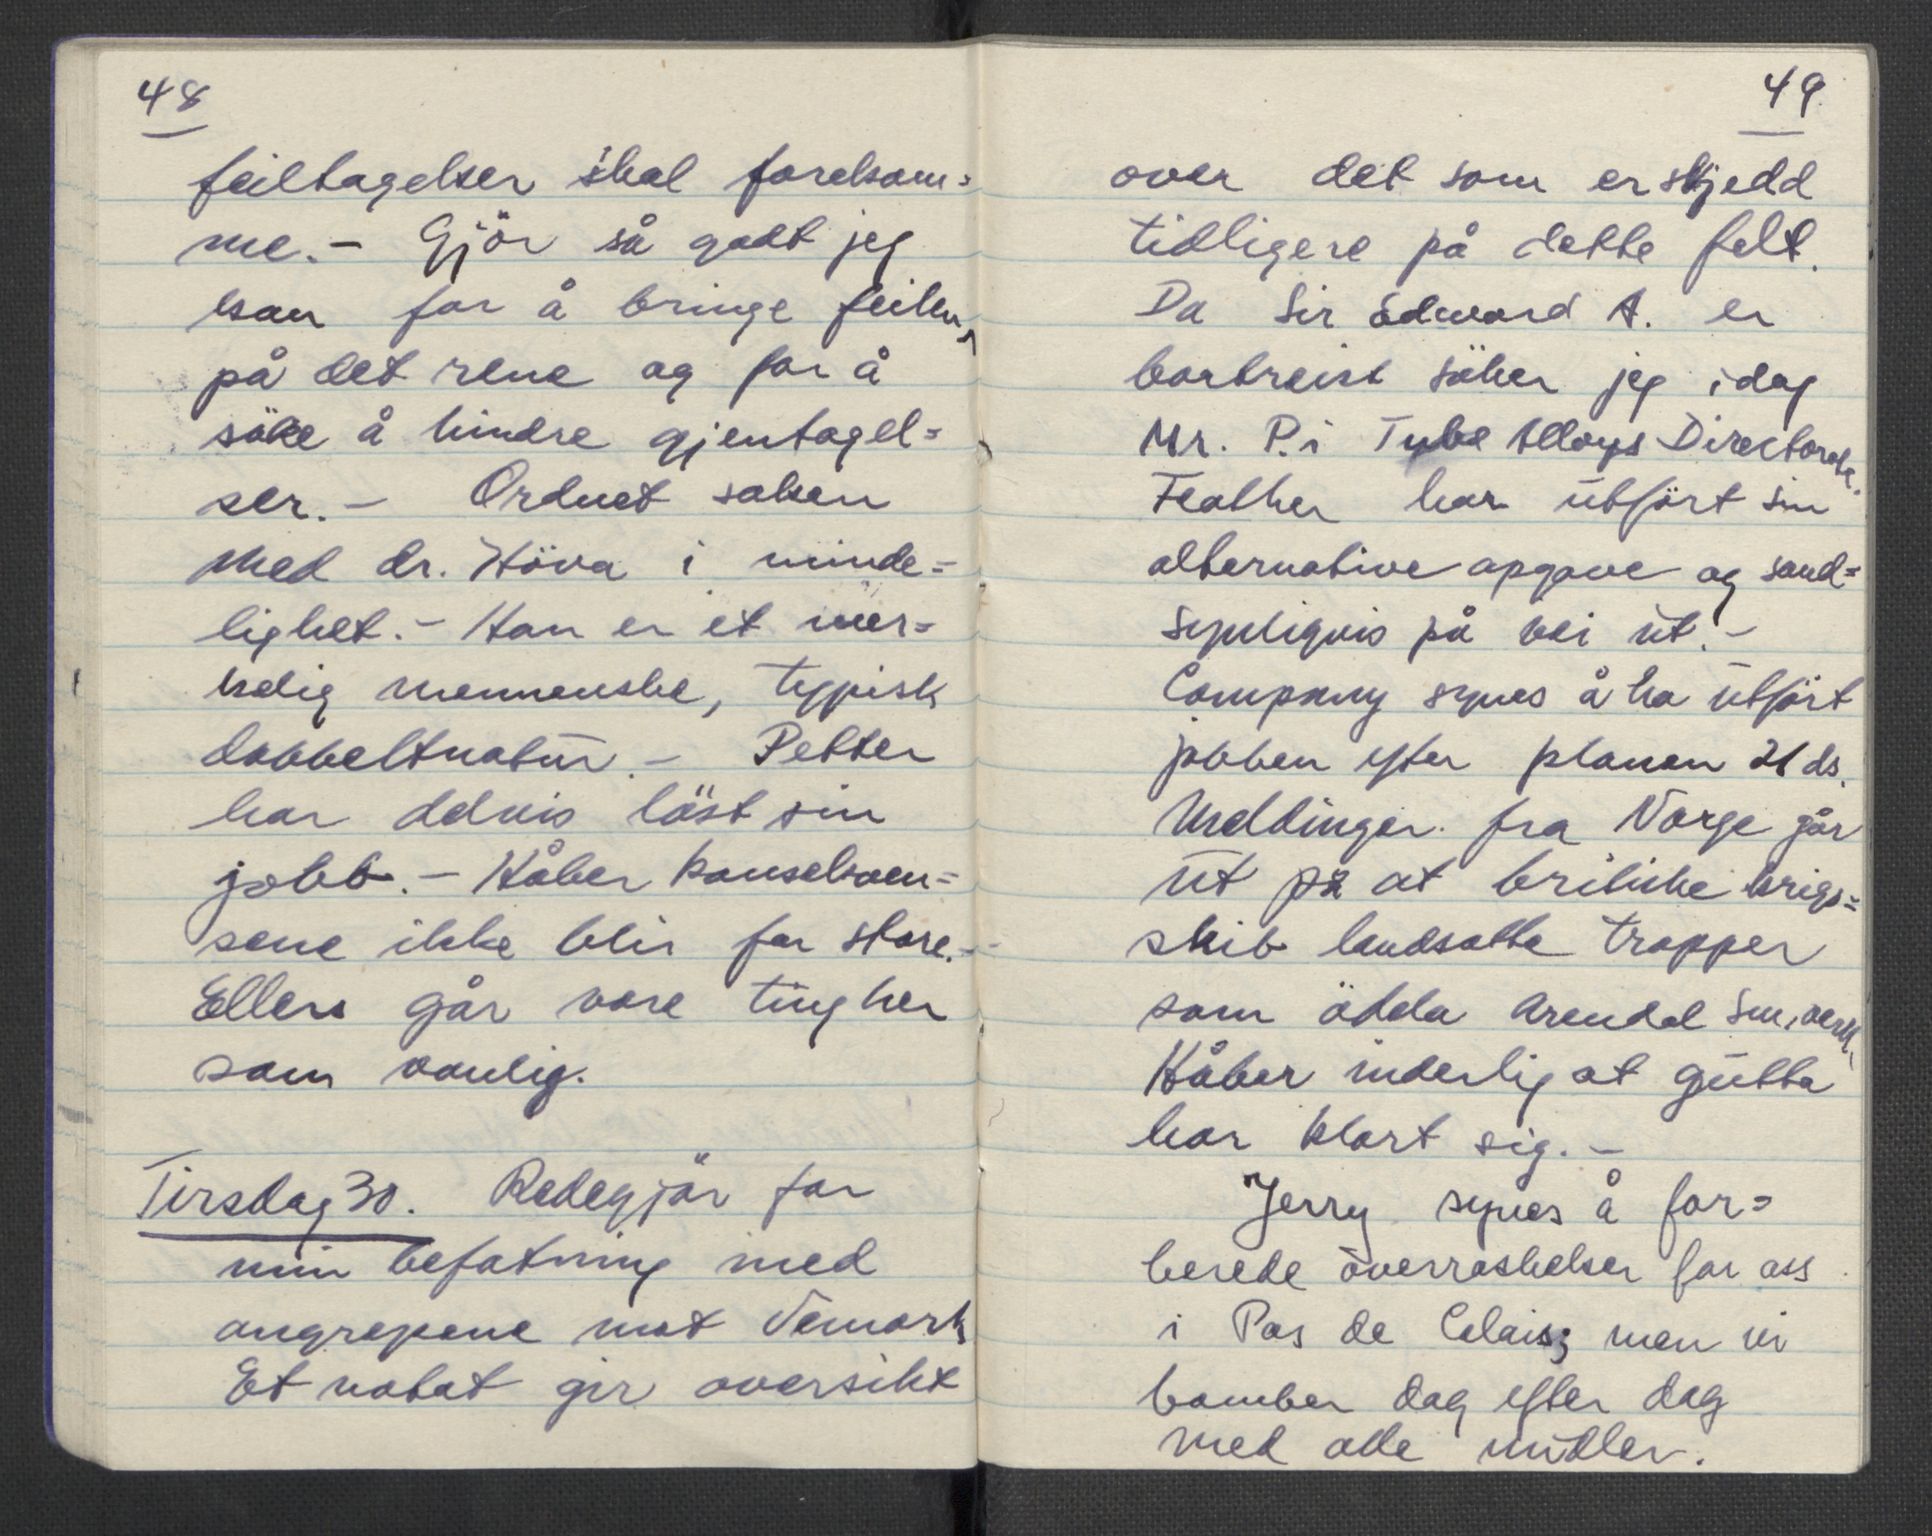 48
feiltagelser skal forekom=
me. - Gjör så godt jeg
kan for å bringe feilen
på det rene og for å
söke å hindre gjentagel=
ser. - Ordnet saken
med dr. Höva i minde=
lighet. - Han er et mer=
kelig menneske, typisk
dobbeltnatur. - Petter
har ddvis löst sin
jobb. - Håber konsekven=
sene ikke blir for store. -
Ellers går vore ting her
som vanlig.
Tirsdag 30. Redegjör for
min befatning med
angrepene mot Vemork
Et notat gir oversikt
49.
over det som er skjedd
tidligere på dette felt.
Da Sir Edward A. er
bortreist söker jeg idag
Mr. P. i Tube Alloys Directorate.
Feather har utfört sin
alternative opgave og sand=
synligvis på vei ut. -
Company synes å ha utfört
jobben efter planen 21 ds.
Meldinger fra Norge går
ut på at britiske krigs=
skib landsatte tropper
som ödela Arendal Sm.verk.
Håber inderlig at gutta
har klart sig. -
Jerry synes å for=
berede overraskelser for oss
i Pas de Calais; men vi
bomber dag efter dag
med alle midler.